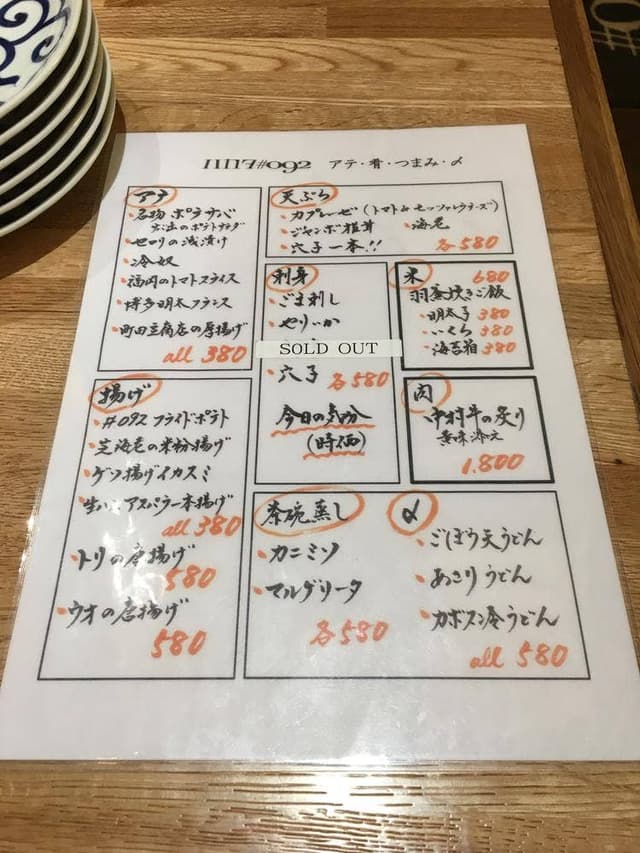 #092 アテ・肴・つまみ・〆
アテ
・名物 ポテサバ
・セロリの浅漬け
・冷奴
・福岡のトマトスライス
・博多明太フランス
・町田豆腐店の厚揚げ
all 380
天ぷら
・カプレーゼ(トマト&モッツァレラチーズ)
・ジャンボ椎茸 ・海老
・穴子一本!! 各580
刺身
・ごま刺し
・やりいか
SOLD OUT
・穴子 各580
今日の気分
(時価)
米 680
羽釜炊きご飯
・明太子 380
・いくら 380
・海苔箱 380
肉
・中村牛の炙り
黄味添え
1.800
揚げ
・#092 フライドポテト
・芝海老の米粉揚げ
・ゲソ揚げイカスミ
・生ハムアスパラ一本揚げ
all 380
・トリの唐揚げ
580
・ウオの唐揚げ
580
茶碗蒸し
・カニミソ
・マルゲリータ
各580
〆
・ごぼう天うどん
・あさりうどん
・カボス冷うどん
all 580